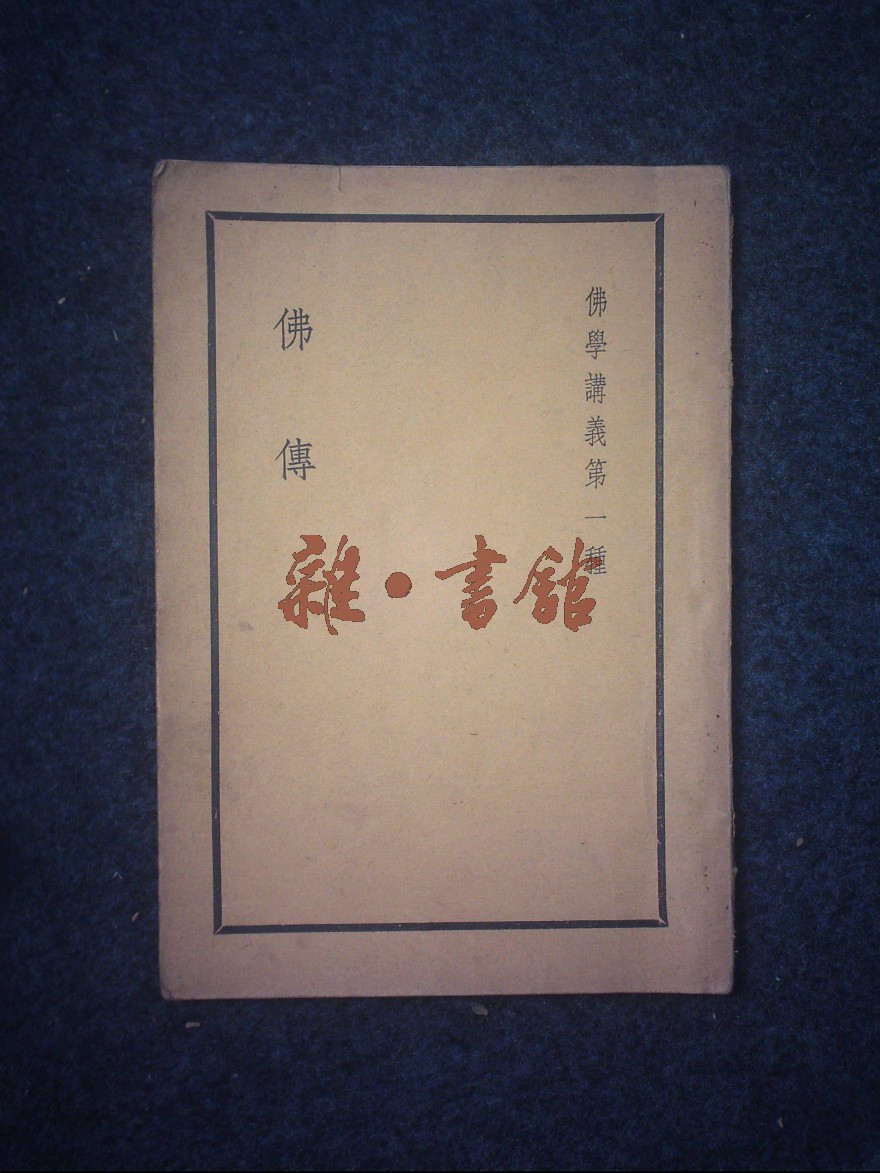 佛學講義第一種
佛傳
雜·書館